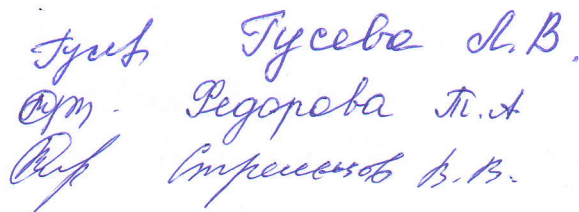 Гусев Гусева Л.В.
Федорова Т.А
Стрельцов В.В.